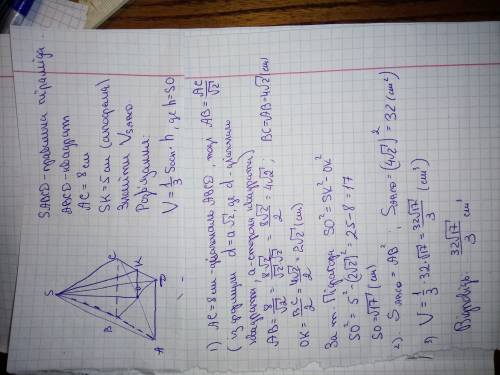 SABCD - правильна піраміда
ABCD - квадрат
AC = 8 см
SK = 5 см (апофема)
Знайти V_SABCD
Розв'язання:
V = 1/3 Sосн · h, де h = SO
S
B
C
K
O
A
D
1) AC = 8 см - діагональ ABCD, тоді AB = AC/√2
(із формули d = a√2, де d - діагональ
квадрата, a - сторона квадрата)
AB = 8/√2 = 8√2/√2·√2 = 8√2/2 = 4√2; BC = AB = 4√2 (см)
OK = BC/2 = 4√2/2 = 2√2 (см)
За т. Піфагора SO² = SK² - OK²
SO² = 5² - (2√2)² = 25 - 8 = 17
SO = √17 (см)
2) S_ABCD = AB², S_ABCD = (4√2)² = 32 (см²)
3) V = 1/3 · 32 · √17 = 32√17/3 (см³)
Відповідь: 32√17/3 см³